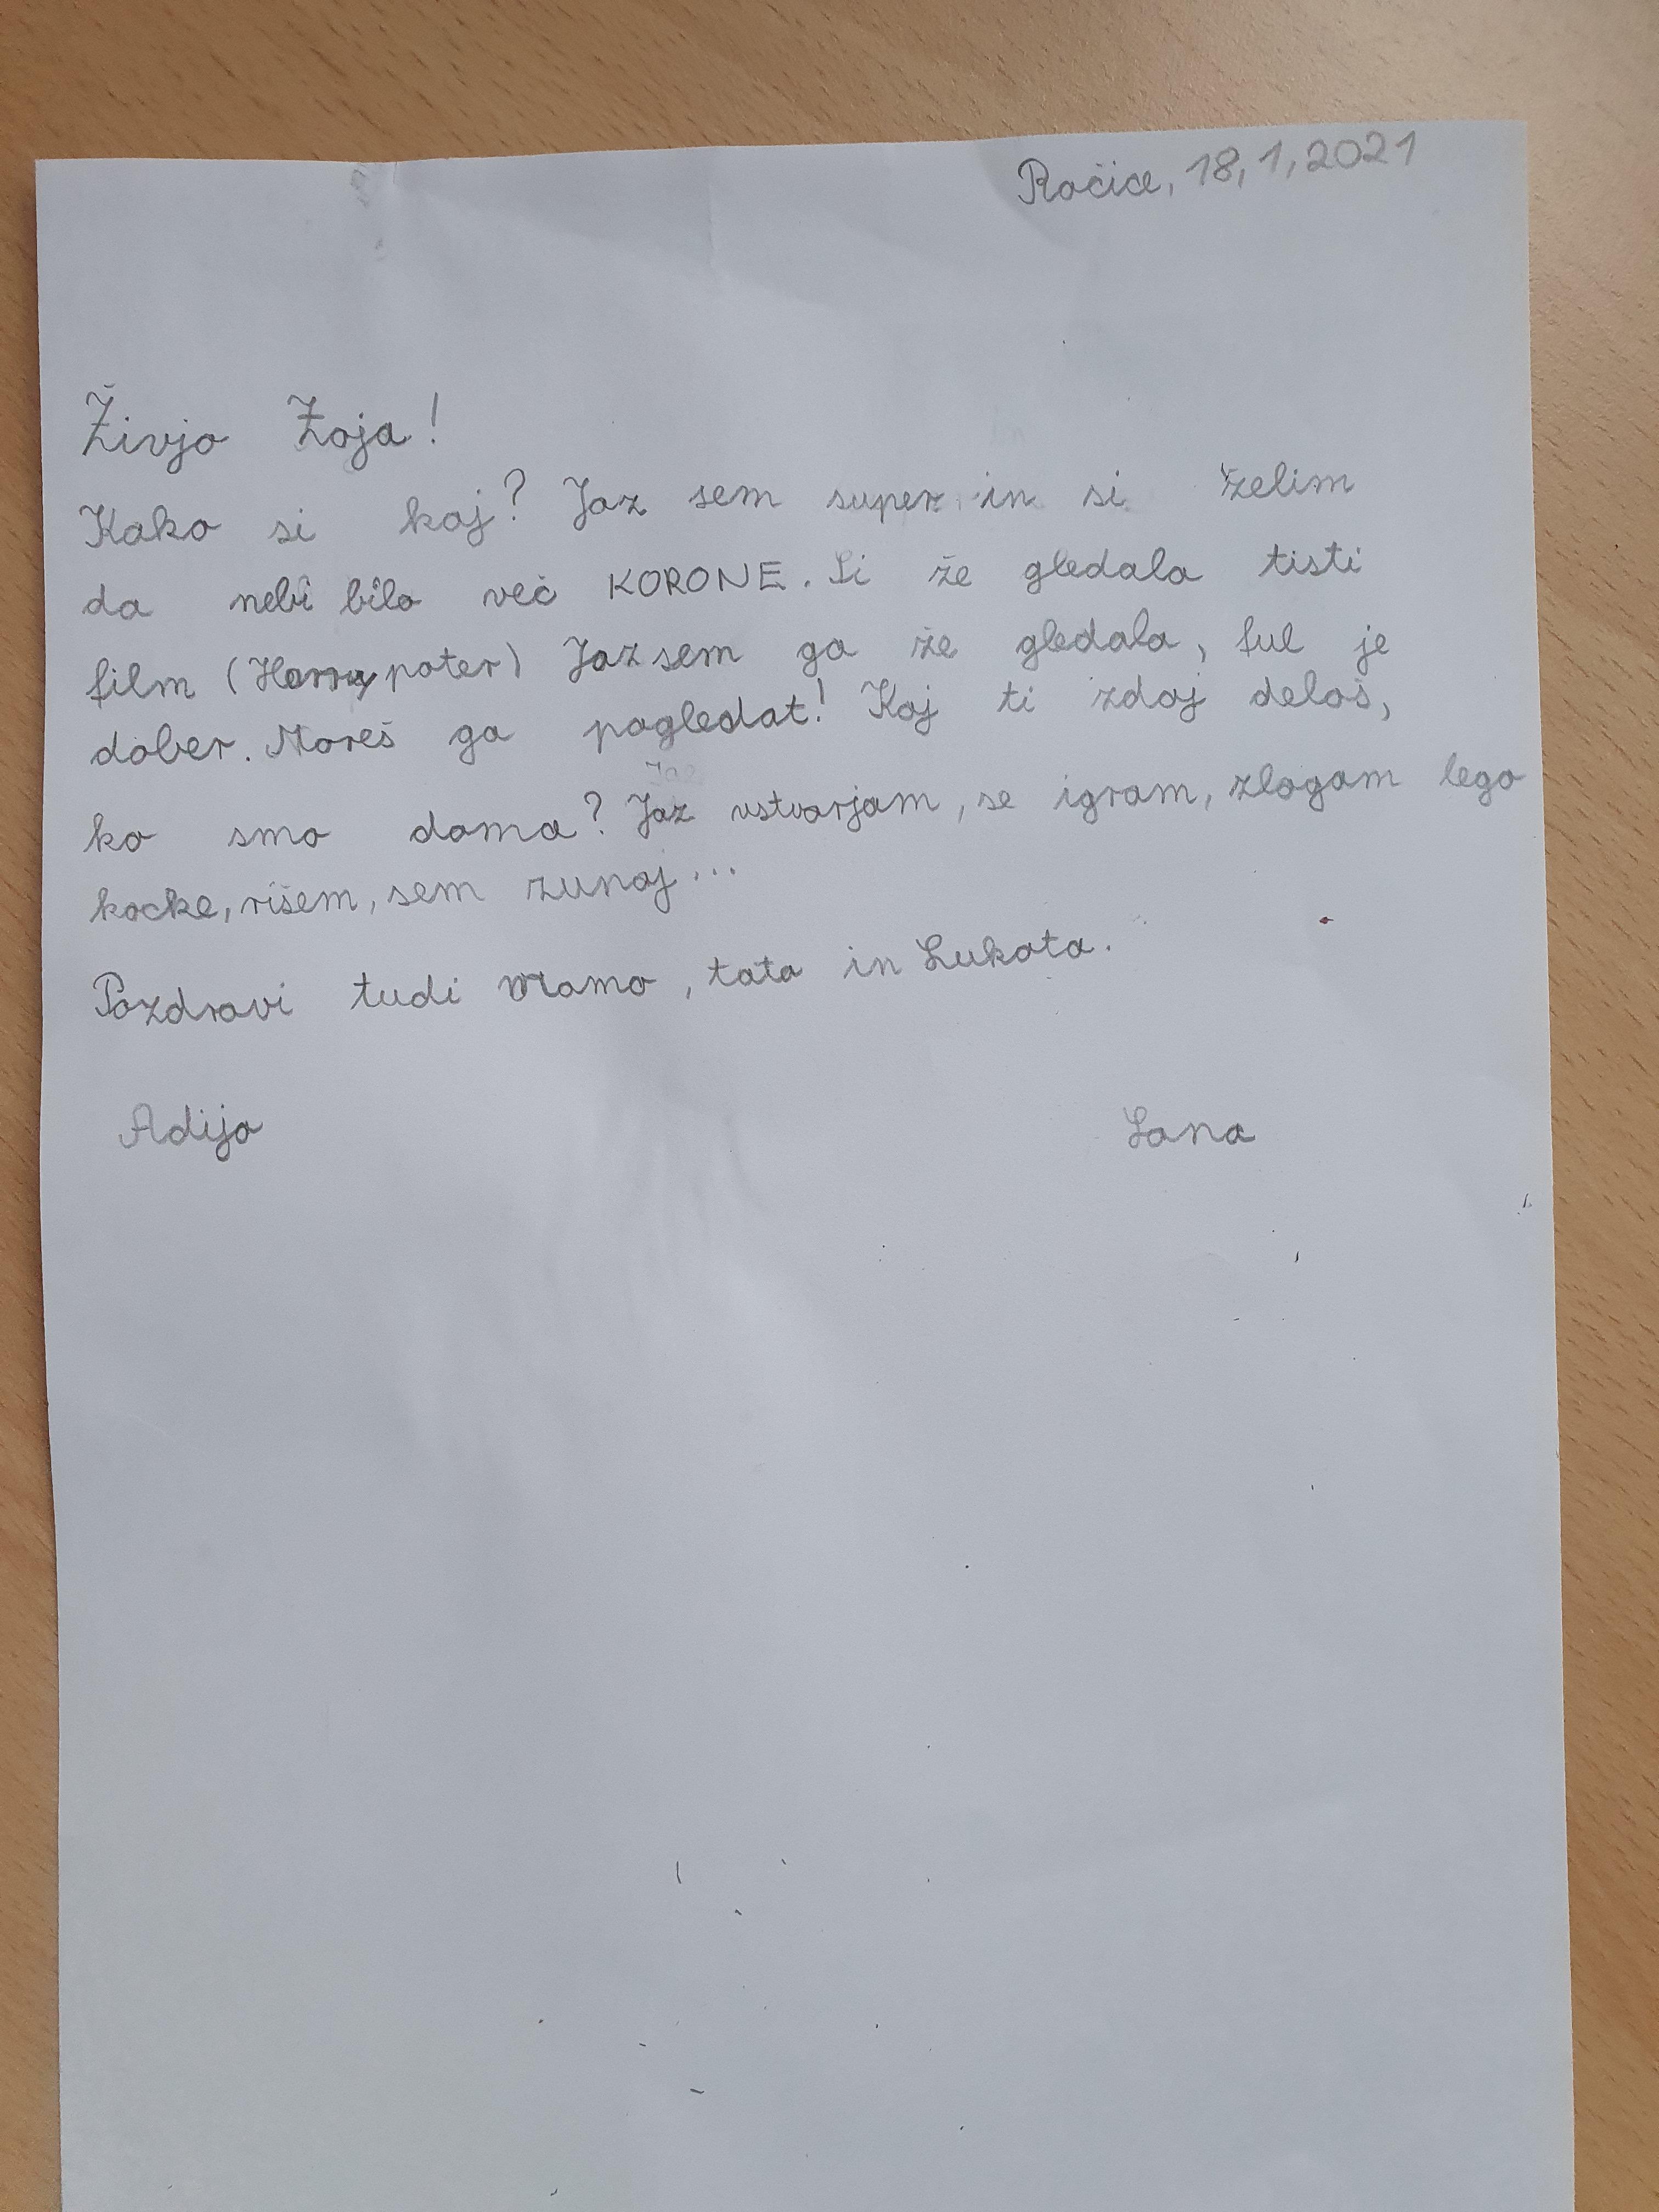 Ročice, 18,1,2021
Živjo Zoja!
Kako si kaj? Jaz sem super in si želim
da nebi bilo več KORONE. Si že gledala tisti
film (Harry poter) Jaz sem ga že gledala, ful je
dober. Moreš ga pogledat! Kaj ti zdaj delaš,
ko smo doma? Jaz ustvarjam, se igram, zlagam lego
kocke, rišem, sem zunaj...
Pozdravi tudi mamo, tata in Lukata.
Adijo Lana